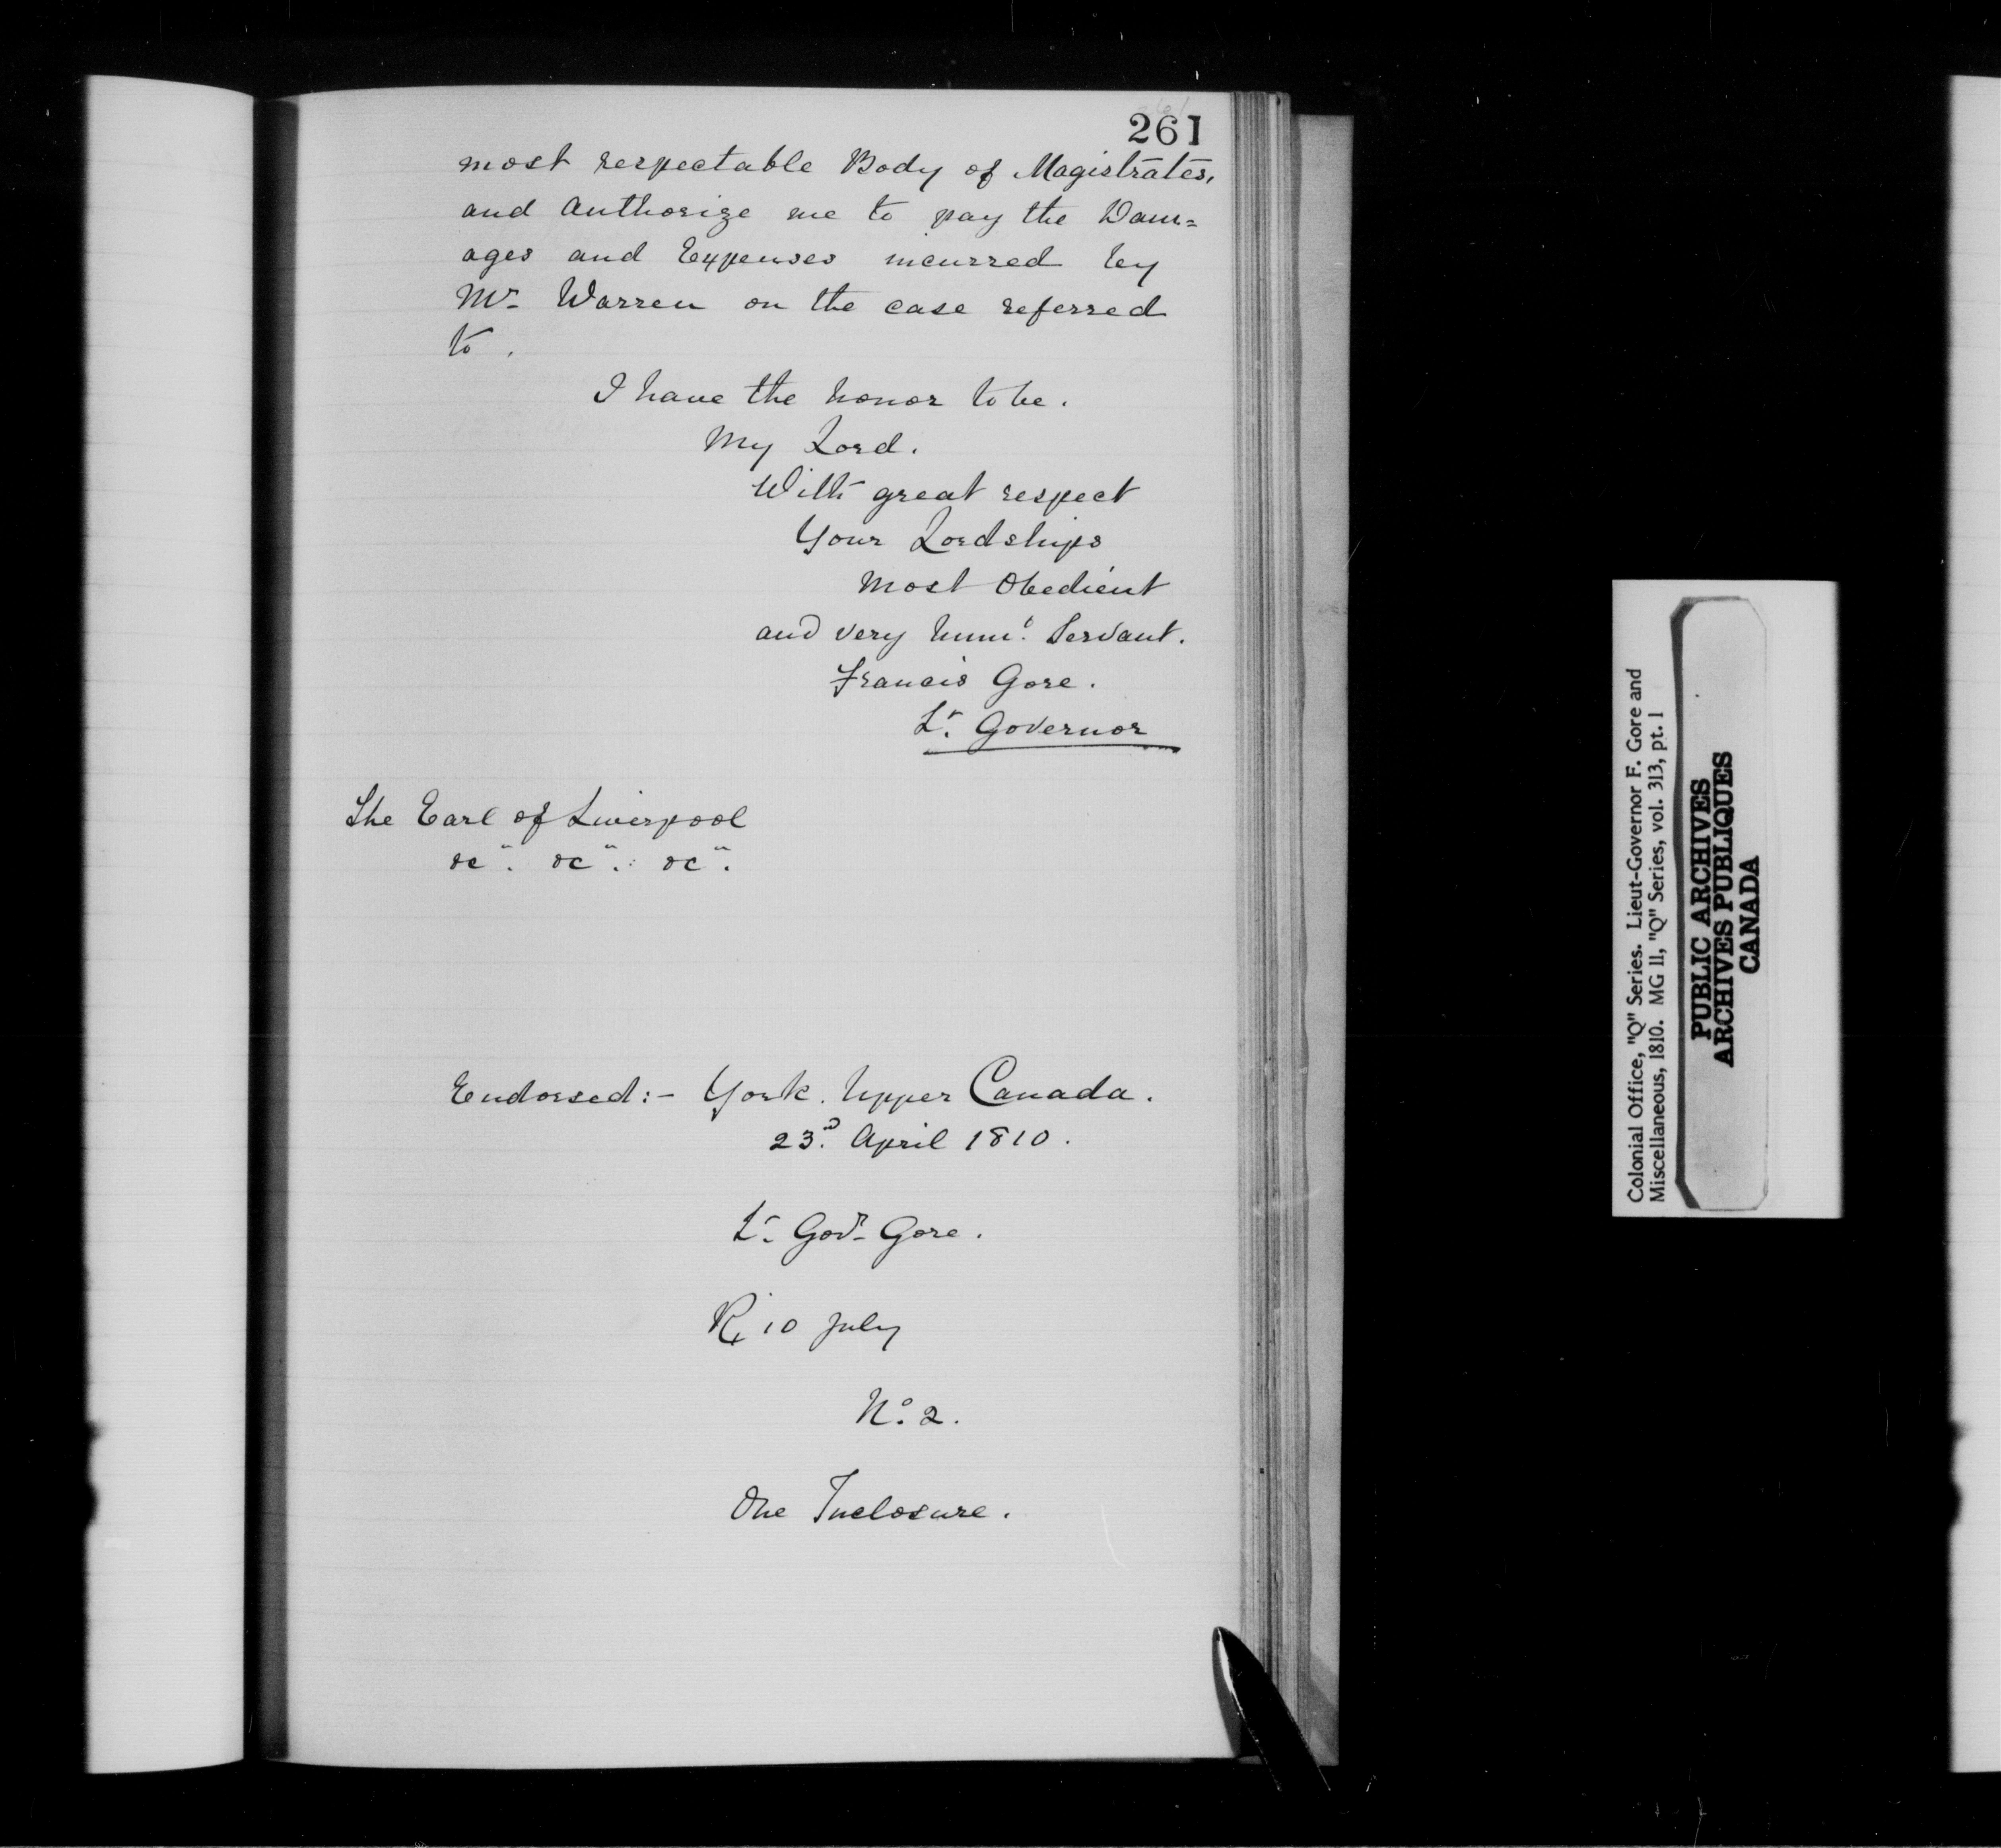 261
most respectable Body of Magistrates,
and Authorize me to pay the Dam=
ages and Expenses incurred by
Mr. Warren on the case referred
to.
I have the honor to be.
My Lord.
With great respect
Your Lordships
Most Obedient
and very humᵉ. Servant.
Francis Gore.
Lᵗ. Governor
The Earl of Liverpool
&c". &c". &c".
Endorsed:- York. Upper Canada.
23ᵈ. April 1810.
Lᵗ. Govʳ. Gore.
R 10 July
Nº. 2.
One Inclosure.
Colonial Office, "Q" Series. Lieut-Governor F. Gore and
Miscellaneous, 1810. MG 11, "Q" Series, vol. 313, pt. 1
PUBLIC ARCHIVES
ARCHIVES PUBLIQUES
CANADA